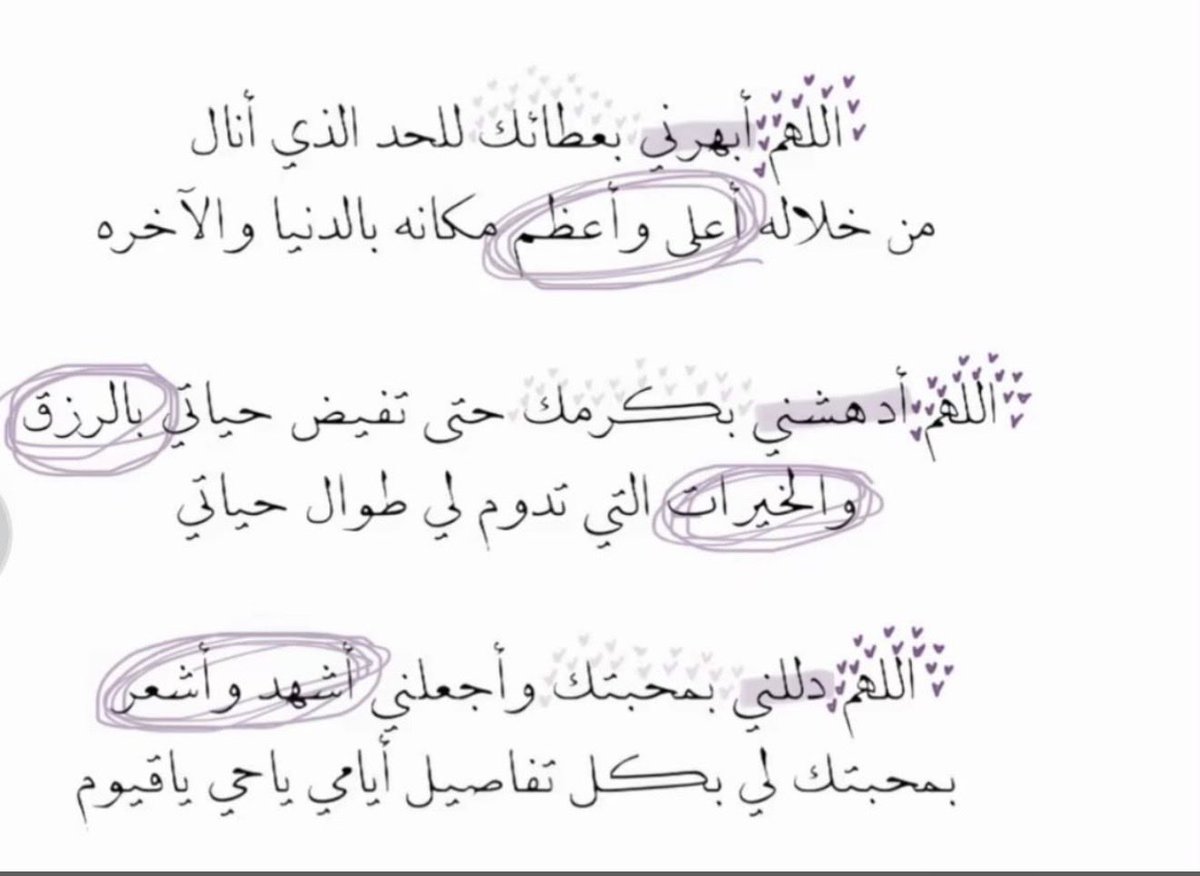 اللهم أبهرني بعطائك للحد الذي أنال
من خلاله أعلى وأعظم مكانه بالدنيا والآخره
اللهم أدهشني بكرمك حتى تفيض حياتي بالرزق
والخيرات التي تدوم لي طوال حياتي
اللهم دللني بمحبتك وأجعلني أشهد وأشعر
بمحبتك لي بكل تفاصيل أيامي ياحي ياقيوم